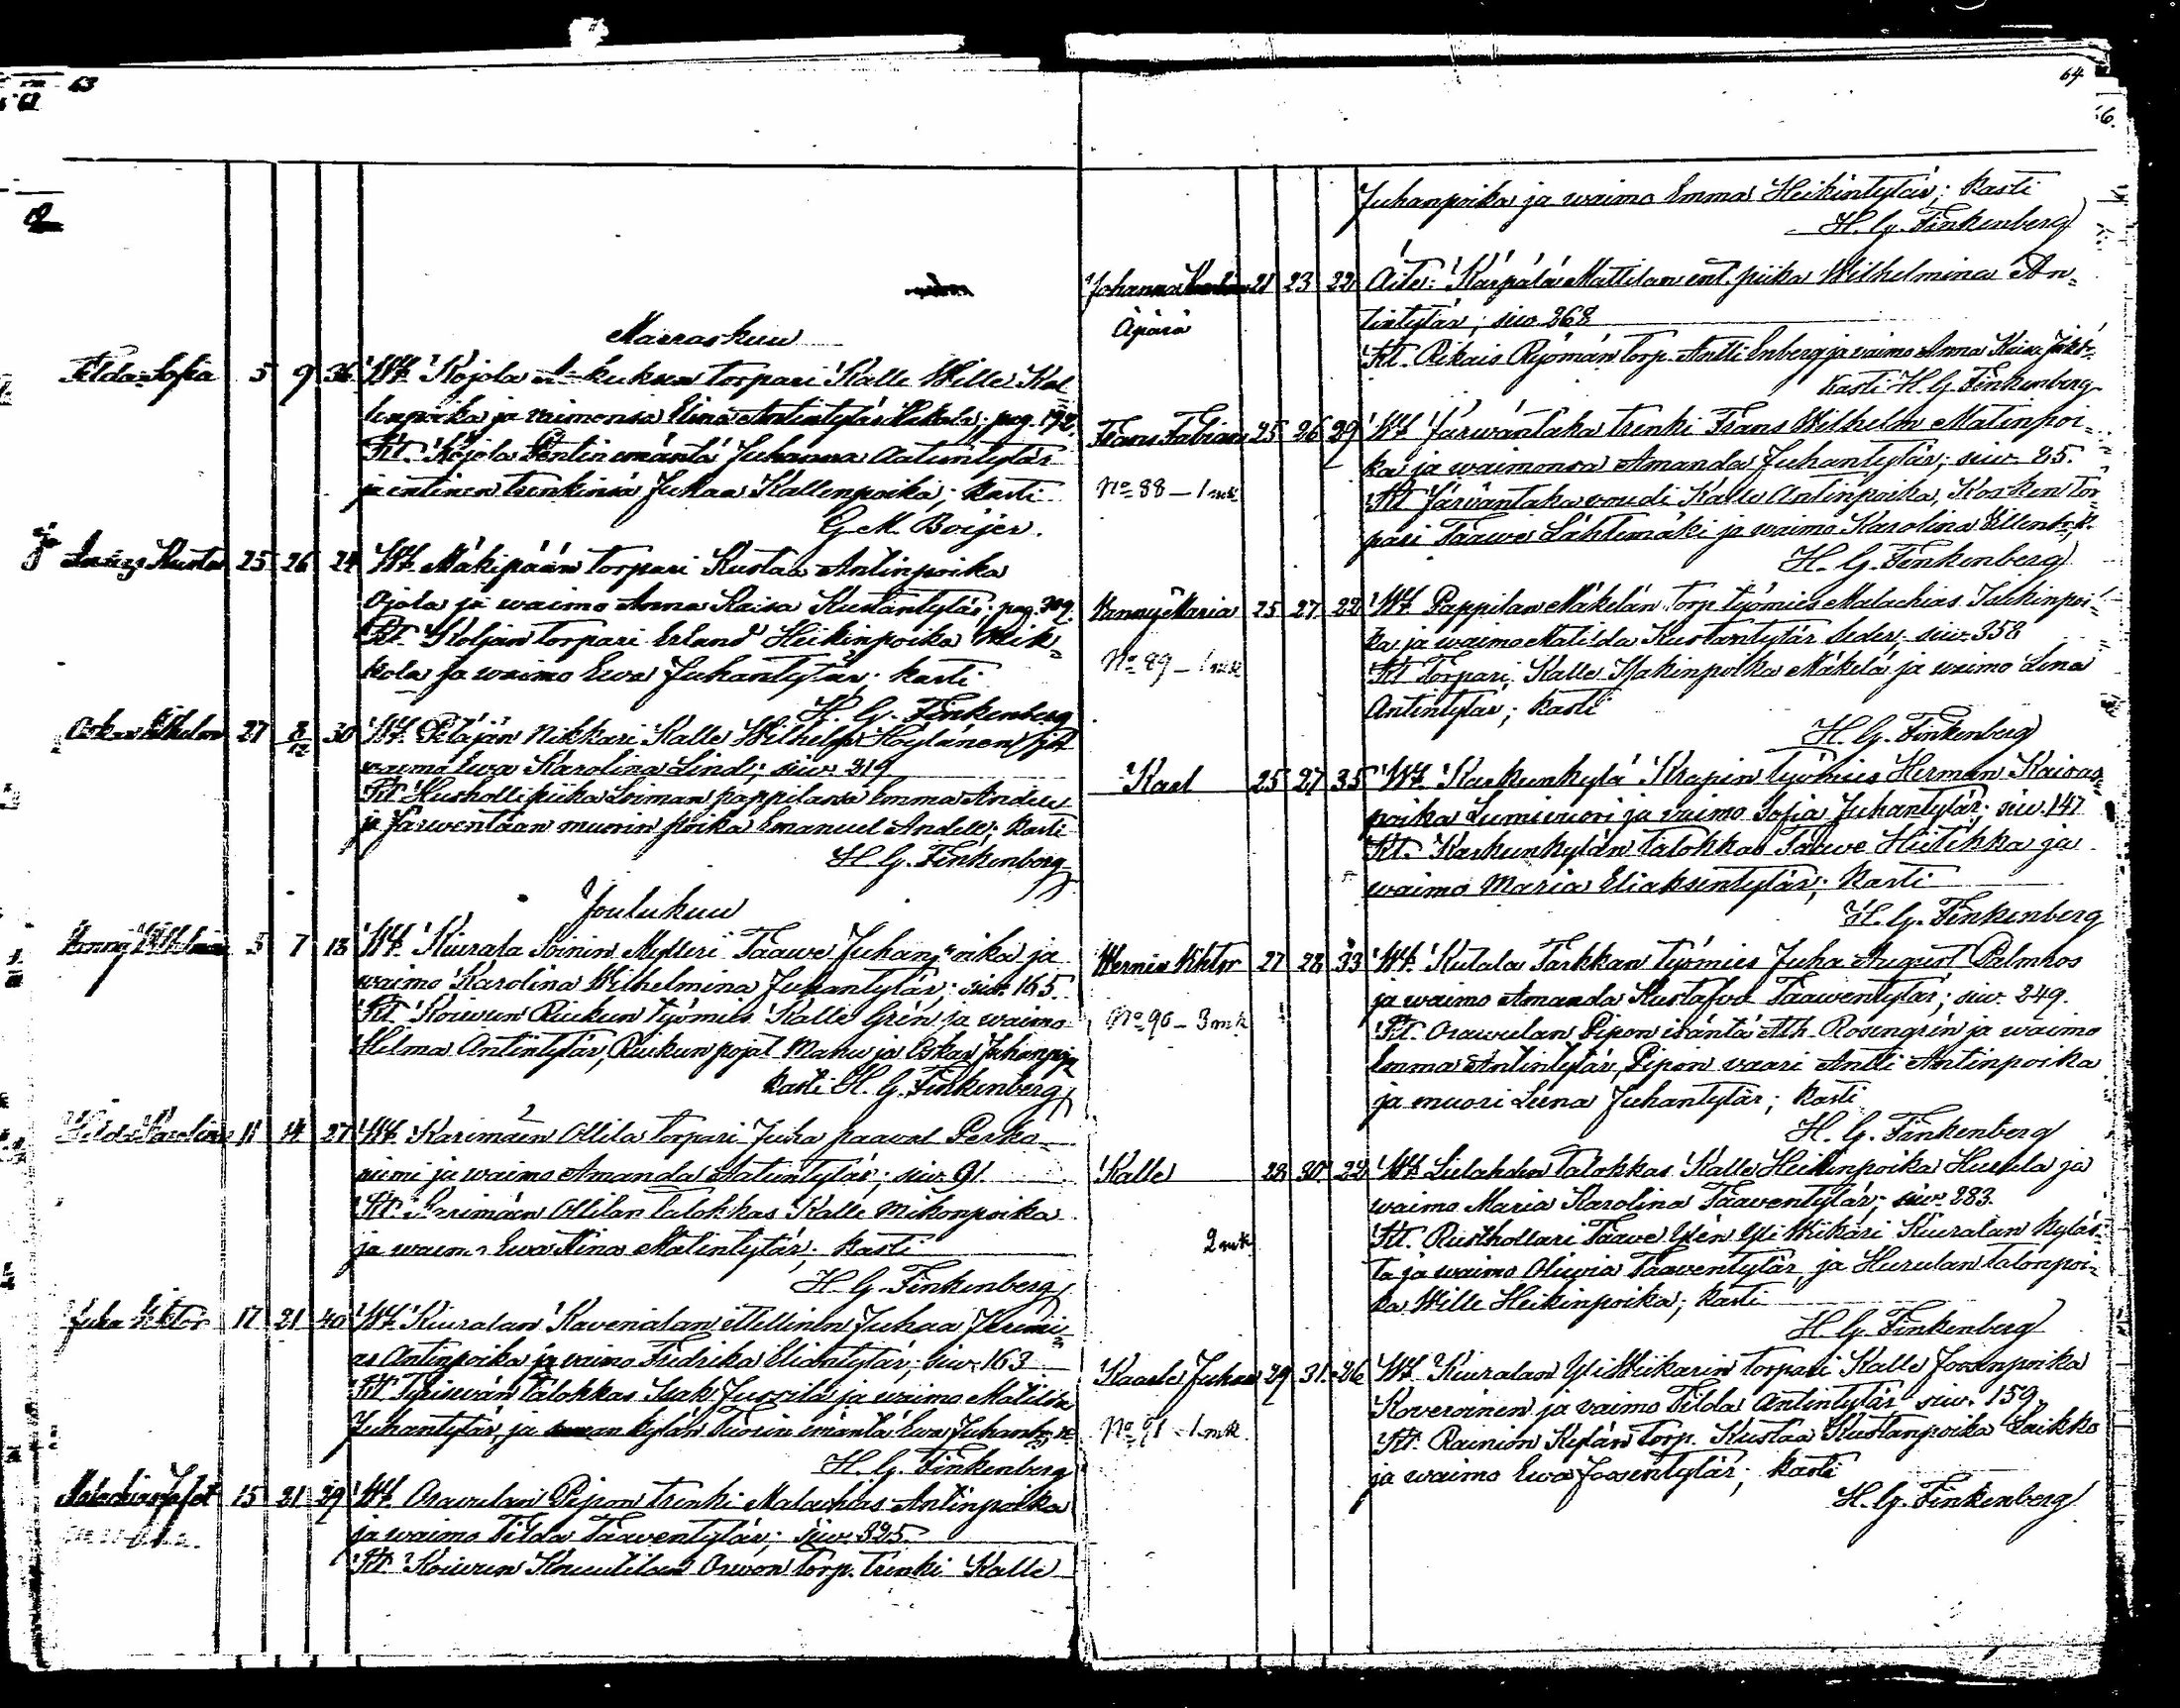 63
Marraskuu
Tilda Sofia 5 9 36 Wt. Kojola torpari Kalle Wille Kal=
lenpoika ja vaimonsa Elina Antintytär Hakala; pag. 192.
Kt. Kojola Pentin emäntä Juhanna Aatuntytär
ja entinen trenkinsä Juhaa Kallenpoika; kasti
G. M. Boijer.
Kusta 25 26 24 Wt. Mäkipään torpari Kustaa Antinpoika
Ojala ja waimo Anna Kaisa Kustantytär; pag. 309.
Kt. Koljan torpari Erland Heikinpoika Mik=
kola ja waimo Ewa Juhantytär; kasti
H. G. Finkenberg
Oskar Wilhelm 27 8/12 30 Wt. Petäjän Nikkari Kalle Wilhelm Höylänen ja
waimo Ewa Karolina Lind; siw. 219
Kt. Husholli piika Loiman pappilassa Emma Andell
ja Jarwentaan muorin poika Emanuel Andell; kasti
H. G. Finkenberg
Joulukuu
Wilhelmina 5 7 18 Wt. Kiurala Soinin Mylleri Taawe Juhanpoika ja
waimo Karolina Wilhelmina Juhantytär; siw. 165.
Kt. Koiwun Ruukun työmies Kalle Grén ja waimo
Hilma Antintytär, Ruukun pojat Manu ja Oskar Juhanp.
kasti H. G. Finkenberg
Hilda Karolina 11 14 27 Wt. Karimaen Ollila torpari Juha paaval Perka=
niemi ja waimo Amanda Aatuntytär; siw. 91.
Kt. Karimäen Ollilan talokkas Kalle Mikonpoika
ja waimo Ewa Stina Matintytär; kasti
H. G. Finkenberg
Juha Viktor 17 21 40 Wt. Kiuralan Ravenialan itellinen Juhaa Jeremi=
as Antinpoika ja vaimo Fredrika Eliantytär; siw. 163
Kt. talokkas Isak Jussila ja waimo Matilda
Juhantytär, ja saman kylän emäntä Ewa Juhant:r
H. G. Finkenberg
Malachias Jafet 15 21 29 Wt. Orawulan Pipon trenki Malachias Antinpoika
ja waimo Tilda Taaventytär; siw. 325.
Kt. Koiwun Knuutilan Orwon torp. trenki Kalle
64
Juhanpoika ja waimo Emma Heikintytär; kasti
H. G. Finkenberg
Johanna 21 23 22 Äite: Kärpälä Mattilan ent. piika Wilhelmina An=
Äpärä tintytär; siw. 268
Kt. Rikais Ryömän torp. Antti Enberg ja waimo Anna Kaisa
kasti H. G. Finkenberg
Frans Fabian 25 26 29 Wt. Järwäntaka trenki Frans Wilhelm Matinpoi=
ka ja waimonsa Amanda Juhantytär; siw. 85.
No 88 – 1 mk Kt. Järwäntaka voudi Kalle Antinpoika, Kosken tor=
pari Taawe Lähtemäki ja waimo Karolina
H. G. Finkenberg
Wanny Maria 25 27 22 Wt. Pappilan Mäkelän torp. työmies Malachias Isikinpoi=
ka ja waimo Matilda Kustantytär Seder; siw. 358
No 89 – 1 mk Kt. Torpari Kalle Iisakinpoika Mäkelä ja waimo Lena
Antintytär; kasti
H. G. Finkenberg
Kaal 25 27 35 Wt. Karhunkylä Krapin työmies Herman Kaivas
poika Lumivuori ja vaimo Sofia Juhantytär; siw. 147
Kt. Karhunkylän talokkas Taawe Hiitikka ja
waimo Maria Eliaksentytär; kasti
H. G. Finkenberg
Wernin Viktor 27 28 33 Wt. Kutala Tarkkan työmies Juha August Palmkos
ja waimo Amanda Kustafva Taawentytär; siw. 249.
No 90 – 3 mk Kt. Orawulan Pipon isäntä Ath. Rosengrén ja waimo
Emma Antintytär, Pipon vaari Antti Antinpoika
ja muori Leena Juhantytär; kasti
H. G. Finkenberg
Kalle 28 30 29 Wt. Lielahden talokkas Kalle Heikinpoika Hurula ja
waimo Maria Karolina Taawentytär; siw. 283.
2 mk Kt. Rusthollari Taave Yli Wikari Kiuralan kyläs=
tä ja waimo Oliwia Taaventytär, ja Hurulan talonpoi=
ka Wille Heikinpoika; kasti
H. G. Finkenberg
Kaarle Juhan 29 31 26 Wt. Kiuralan Yli Wikarin torpari Kalle Joosenpoika
Koveroinen ja vaimo Tilda Antintytär siw. 159.
No 91 – 1 mk. Kt. Rainion Kylän torp. Kustaa Kustanpoika Laikko
ja waimo Ewa Joosentytär; kasti
H. G. Finkenberg